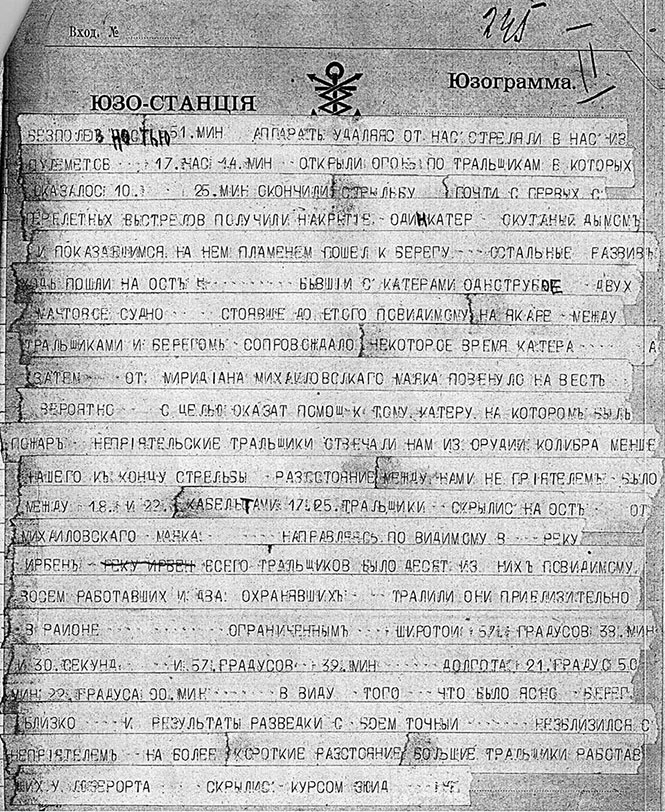 Вход. №
245
II
Юзограмма.
ЮЗО-СТАНЦІЯ
БЕЗПОЛЕВНОСТЬЮ 51. МИН АППАРАТЬ УДАЛЯЯС ОТ НАС СТРЕЛЯЛИ В НАС ИЗ
ПУЛЕМЕТОВ 17. ЧАС 14. МИН ОТКРЫЛИ ОГОНЬ ПО ТРАЛЬЩИКАМ В КОТОРЫХ
ОКАЗАЛОС 10. 25. МИН СКОНЧИЛИ СТРЫЛЬБУ ПОЧТИ С ПЕРВЫХ С
ПЕРЕЛЕТНЫХ ВЫСТРЕЛОВ ПОЛУЧИЛИ НАКРЫТІЕ ОДИНКАТЕР ОКУТАНЫЙ ДЫМОМЪ
И ПОКАЗАВШИМСЯ НА НЕМ ПЛАМЕНЕМ ПОШЕЛ К БЕРЕГУ ОСТАЛЬНЫЕ РАЗВИВЪ
ХОДЪ ПОШЛИ НА ОСТЬ БЫВШІИ С КАТЕРАМИ ОДНОТРУБОЕ ДВУХ
МАЧТОВОЕ СУДНО СТОЯВШЕ ДО ЕТОГО ПОВИДИМОМУ НА ЯКАРЕ МЕЖДУ
ТРАЛЬЩИКАМИ И БЕРЕГОМЪ СОПРОВОЖДАЛО НЕКОТОРОЕ ВРЕМЯ КАТЕРА А
ЗАТЕМ ОТ МИРИДІАНА МИХАИЛОВСЛКАГО МАЯКА ПОВЕНУЛО НА ВЕСТЬ
ВЕРОЯТНО С ЦЕЛЬЮ ОКАЗАТ ПОМОЩ К ТОМУ КАТЕРУ НА КОТОРОМЪ БЫЛЪ
ПОЖАРЪ НЕПРІЯТЕЛЬСКИЕ ТРАЛЬЩИКИ ОТВЕЧАЛИ НАМ ИЗ ОРУДИИ КОЛИБРА МЕНШЕ
НАШЕГО КЪ КОНЦУ СТРЕЛЬБЫ РАЗССТОЯНИЕ МЕЖДУ НАМИ НЕ ПРІЯТЕЛЕМЪ БЫЛО
МЕЖДУ 18. И 22. КАБЕЛЬТАЧИ 17. 25. ТРАЛЬЩИКИ СКРЫЛИС НА ОСТЬ ОТ
МИХАИЛОВСКАГО МАЯКА НАПРАВЛЯЯСЬ ПО ВИДИМОМУ В РЕКУ
ИРБЕНЬ РЕКУ ИРБЕН ВСЕГО ТРАЛЬЩИКОВ БЫЛО ДЕСЯТ ИЗ НИХЪ ПОВИДИМОМУ
ВОСЕМ РАБОТАВШИХ И ДВА ОХРАНЯВШИХЪ ТРАЛИЛИ ОНИ ПРИБЛИЗИТЕЛЬНО
В РАИОНЕ ОГРАНИЧЕННЫМЪ ШИРОТОИ 57. ГРАДУСОВ 38. МИН
И 30. СЕКУНД И 57. ГРАДУСОВ 39. МИН ДОЛГОТА 21. ГРАДУС 50
МИН 22. ГРАДУСА 00. МИН В ВИДУ ТОГО ЧТО БЫЛО ЯСНО БЕРЕГ
БЛИЗКО И РЕЗУЛЬТАТЫ РАЗВЕДКИ С БОЕМ ТОЧНЫИ НЕЗБЛИЗИЛСЯ С
НЕПРІЯТЕЛЕМЪ НА БОЛЕЕ КОРОТКИЕ РАЗСТОЯНИЕ БОЛЬШИЕ ТРАЛЬЩИКИ РАБОТАВ
ШИХ У ЛЮЗЕРОРТА СКРЫЛИС КУРСОМ